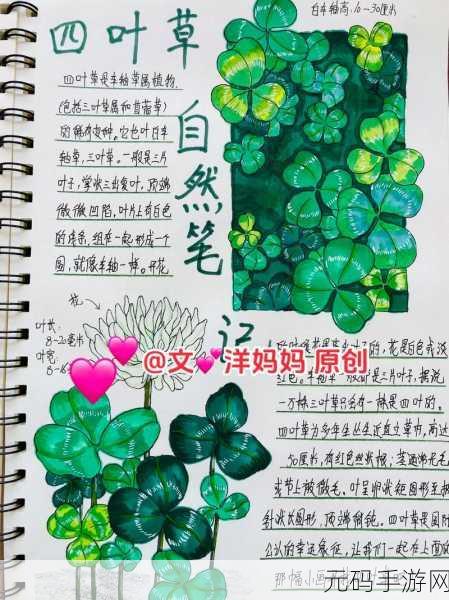 四叶草
自然笔记
白车轴高:10-30厘米
四叶草是车轴草属植物
(包括三叶草属和苜蓿草)
的稀有变种。它也叶白车
轴草,三叶草。一般是三片
叶子,掌状三出复叶,顶端
微微凹陷,叶片上有白色
的痕条,组在一起形成一个
圆,就像车轴一样。开花
花
叶长:
8-20毫米
叶宽:
8-16
@文💕洋妈妈 原创
的,花是白色或淡
红色。
是三片叶子,据说
一万株三叶草只会有一株是四叶的。
四叶草为多年生丛生直立草本,高达
50厘米,有红色
茎通常无毛
或节上被微毛。叶呈卵状矩圆形至披
针状长圆形,顶端稍钝。四叶草是国际
公认的幸运象征,让我们一起在上面的
那幅小画
元码手游网